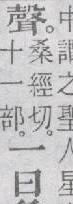 中謂之聖人星
聲。桑經切。十一部。一曰